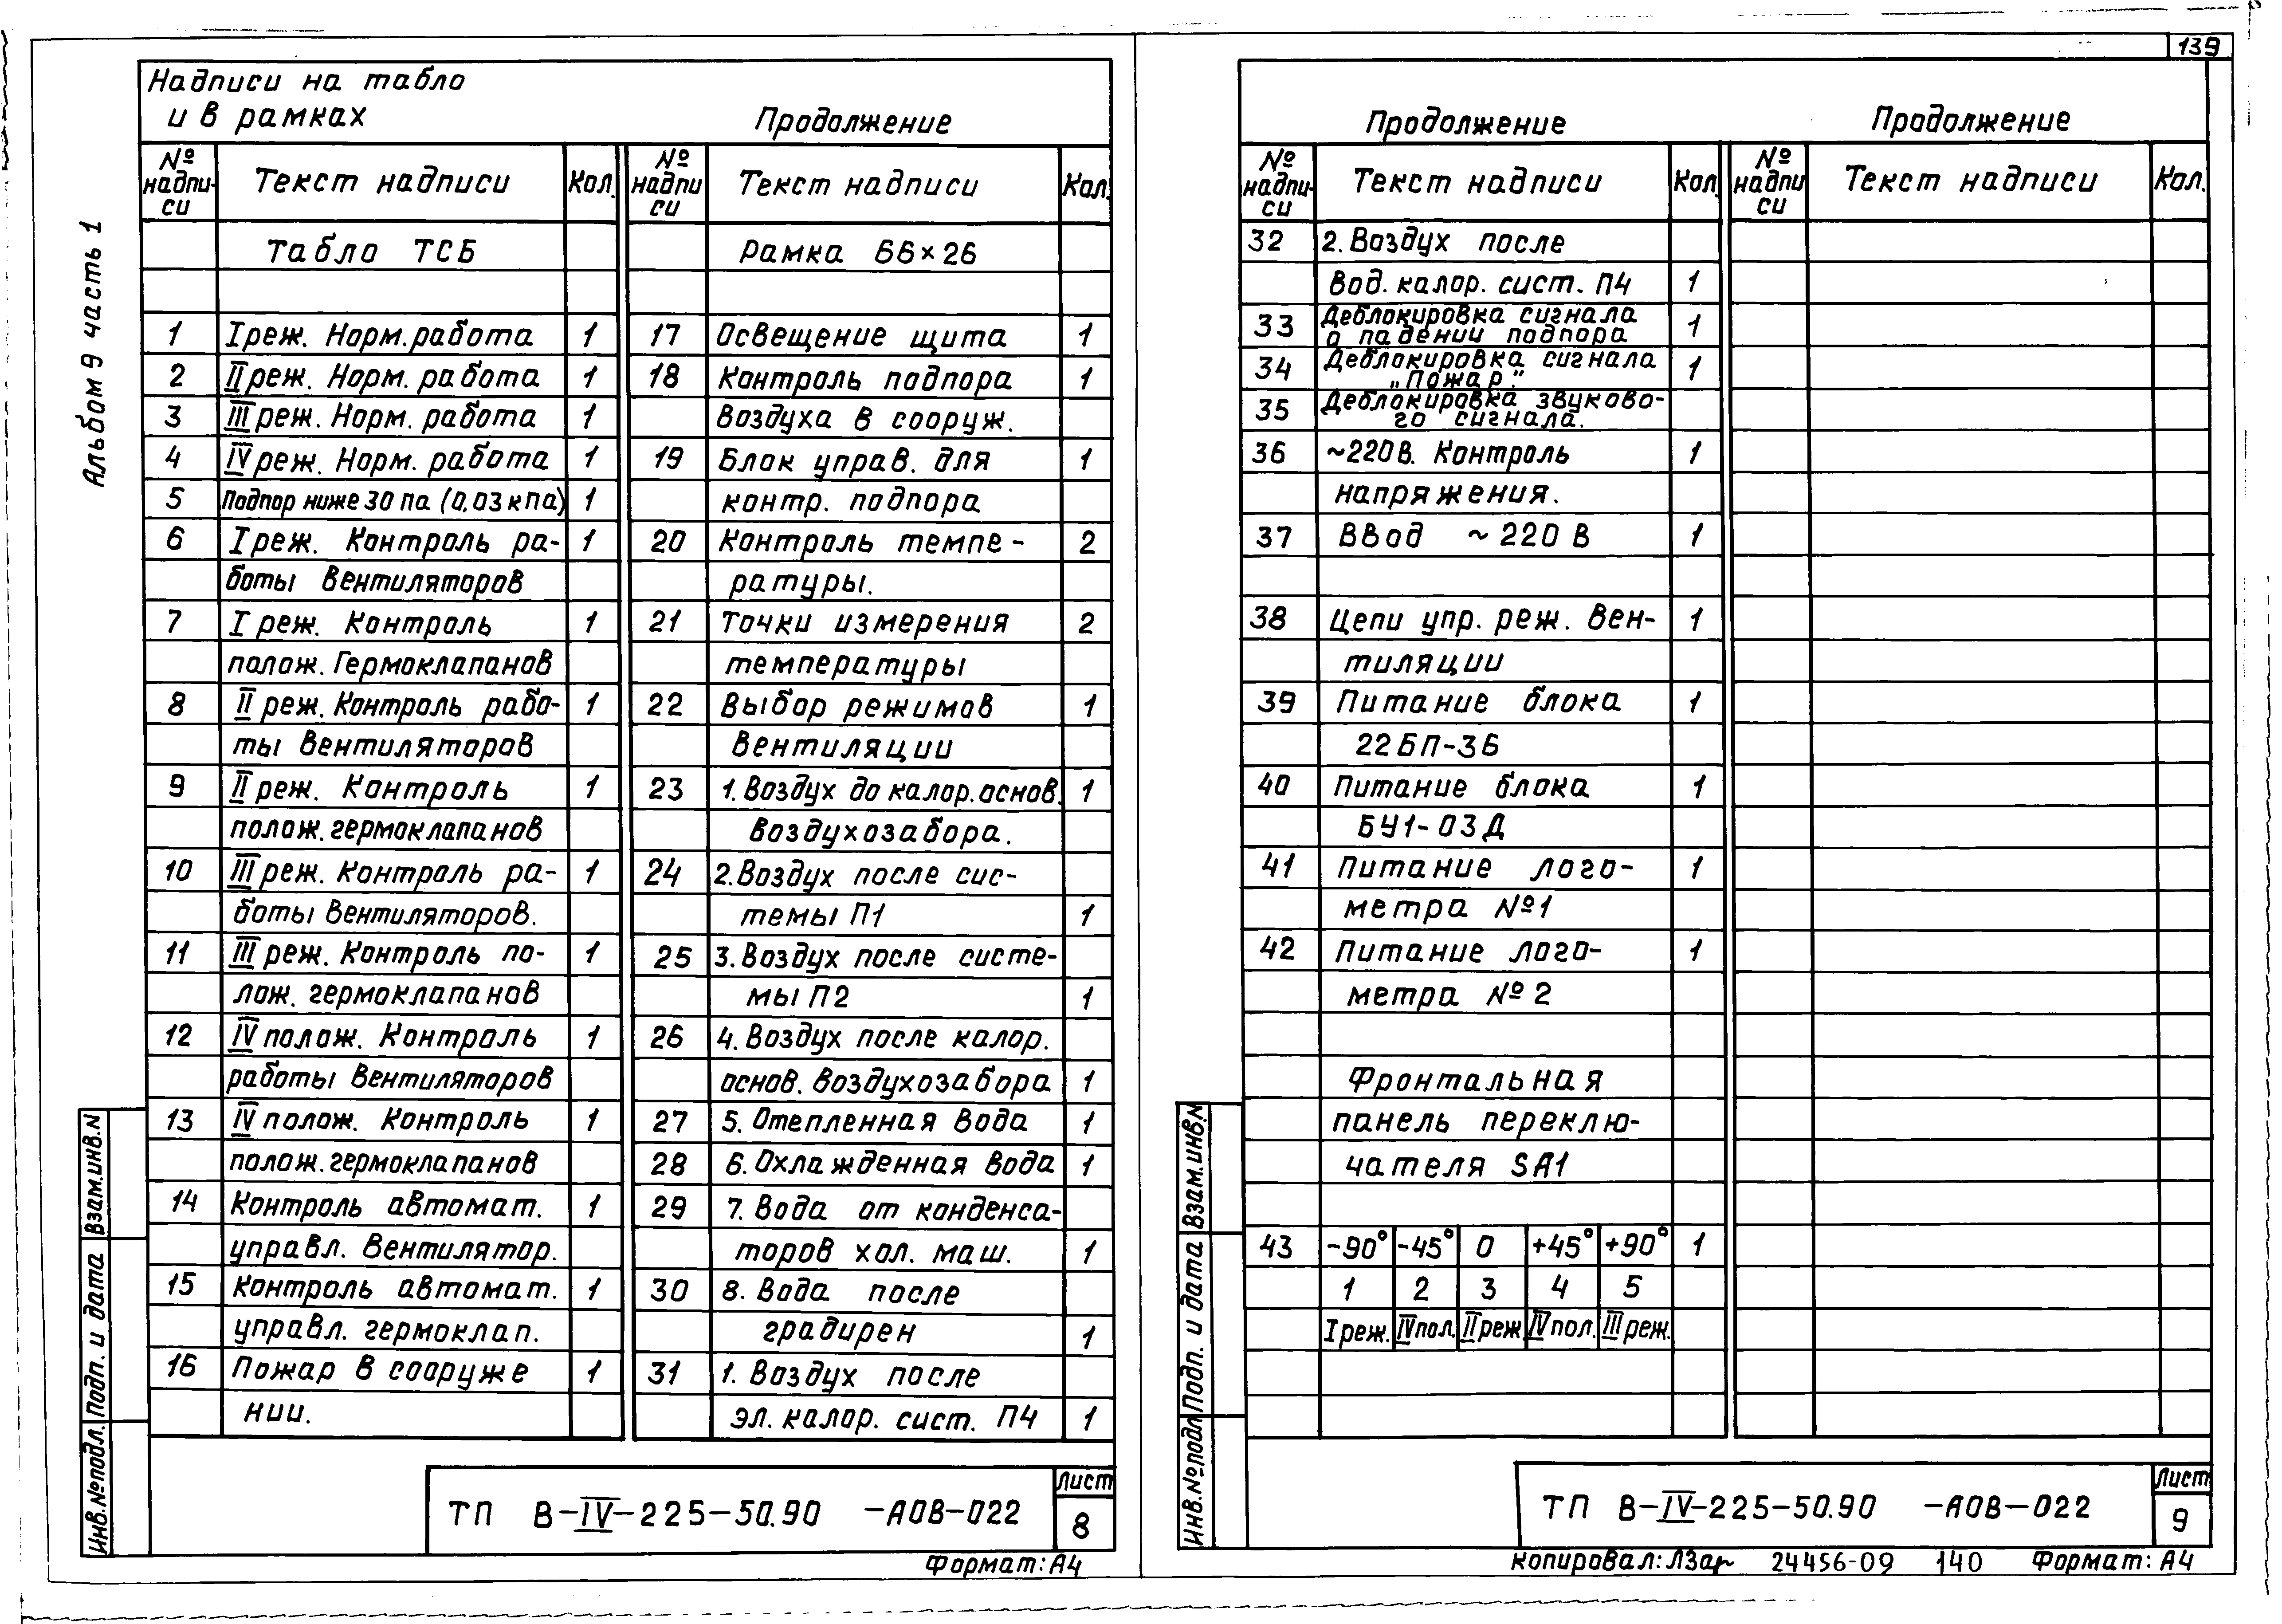 139
Альбом 9 часть 1
Надписи на табло
и в рамках
Продолжение
№ надпи-си Текст надписи Кол.
Табло ТСБ
1 I реж. Норм. работа 1
2 II реж. Норм. работа 1
3 III реж. Норм. работа 1
4 IV реж. Норм. работа 1
5 Подпор ниже 30 па (0,03 кПа) 1
6 I реж. Контроль ра- 1
боты вентиляторов
7 I реж. Контроль 1
полож. Гермоклапанов
8 II реж. Контроль рабо- 1
ты вентиляторов
9 II реж. Контроль 1
полож. гермоклапанов
10 III реж. Контроль ра- 1
боты вентиляторов.
11 III реж. Контроль по- 1
лож. гермоклапанов
12 IV полож. Контроль 1
работы вентиляторов
13 IV полож. Контроль 1
полож. гермоклапанов
14 Контроль автомат. 1
управл. вентилятор.
15 Контроль автомат. 1
управл. гермоклап.
16 Пожар в сооруже 1
нии.
№ надпи си Текст надписи Кол.
Рамка 66×26
17 Освещение щита 1
18 Контроль подпора 1
воздуха в сооруж.
19 Блок управ. для 1
контр. подпора
20 Контроль темпе- 2
ратуры.
21 Точки измерения 2
температуры
22 Выбор режимов 1
вентиляции
23 1. Воздух до калор. основ. 1
воздухозабора.
24 2. Воздух после сис-
темы П1 1
25 3. Воздух после систе-
мы П2 1
26 4. Воздух после калор.
основ. воздухозабора 1
27 5. Отепленная вода 1
28 6. Охлажденная вода 1
29 7. Вода от конденса-
торов хол. маш. 1
30 8. Вода после
градирен 1
31 1. Воздух после
эл. калор. сист. П4 1
ТП В-IV-225-50.90 -АОВ-022
Лист
8
Формат: А4
Взам. инв. N
Подп. и дата
Инв. № подл.
Продолжение
Продолжение
№ надпи-си Текст надписи Кол
32 2. Воздух после
вод. калор. сист. П4 1
33 Деблокировка сигнала 1
о падении подпора
34 Деблокировка сигнала 1
„Пожар".
35 Деблокировка звуково-
го сигнала.
36 ~220 В. Контроль 1
напряжения.
37 Ввод ~220 В 1
38 Цепи упр. реж. вен- 1
тиляции
39 Питание блока 1
22БП-36
40 Питание блока 1
БУ1-03Д
41 Питание лого- 1
метра №1
42 Питание лого- 1
метра №2
Фронтальная
панель переклю-
чателя SA1
43 -90° -45° 0 +45° +90° 1
1 2 3 4 5
I реж. IV пол. II реж IV пол. III реж.
№ надпи си Текст надписи Кол.
ТП В-IV-225-50.90 -АОВ-022
Лист
9
Взам. инв. N
Подп. и дата
Инв. № подл
Копировал: 24456-09 140 Формат: А4